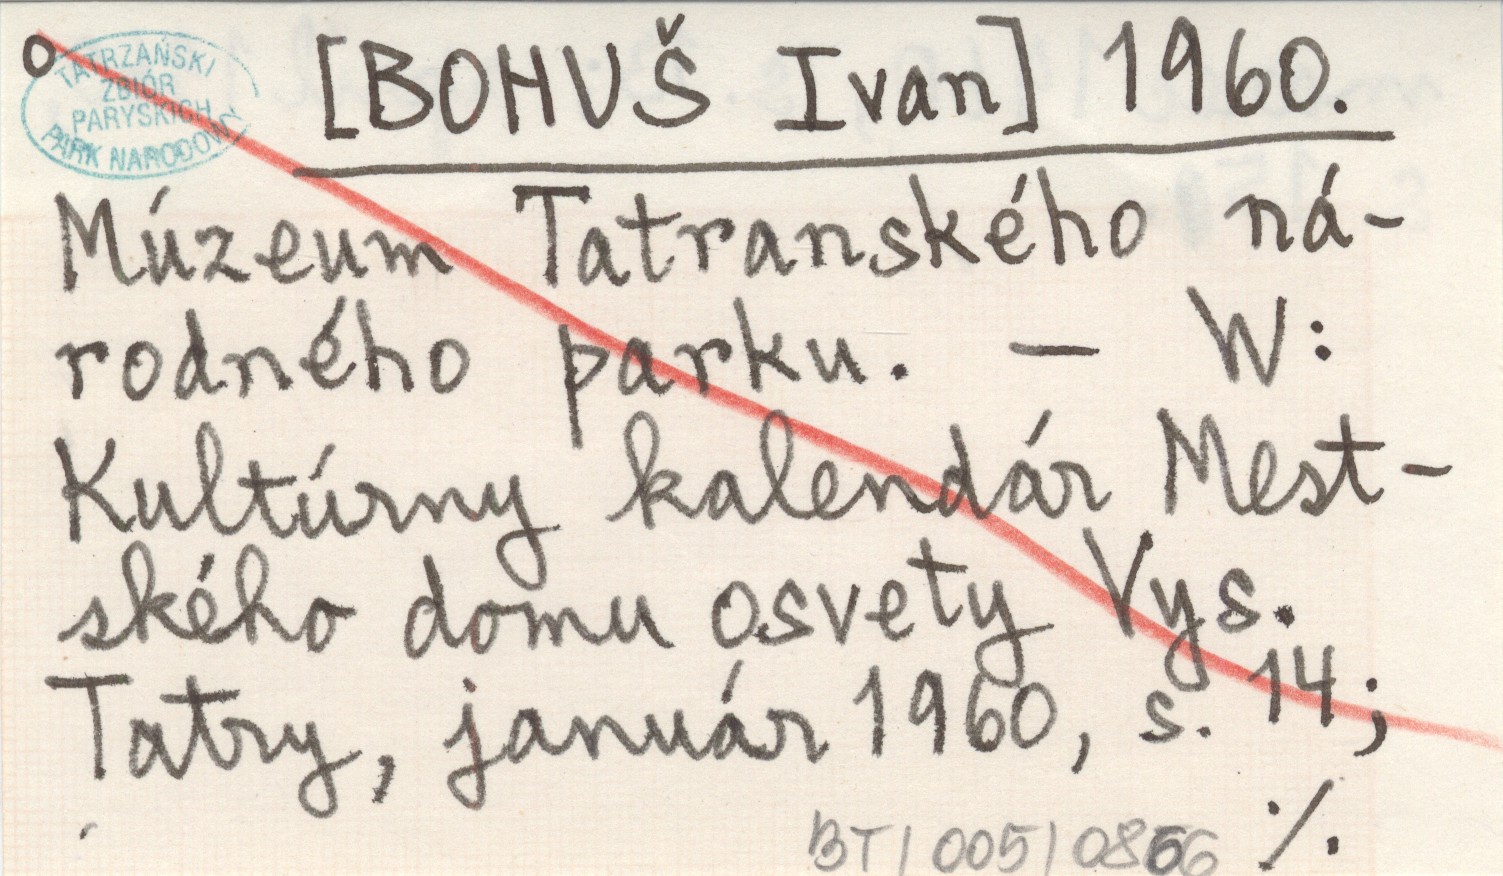 o
TATRZAŃSKI
ZBIÓR
PARYSKICH
PARK NARODOWY
[BOHUŠ Ivan] 1960.
Múzeum Tatranského ná-
rodného parku. — W:
Kultúrny kalendár Mest-
ského domu osvety Vys.
Tatry, január 1960, s. 14;
BT/005/0866 ./.